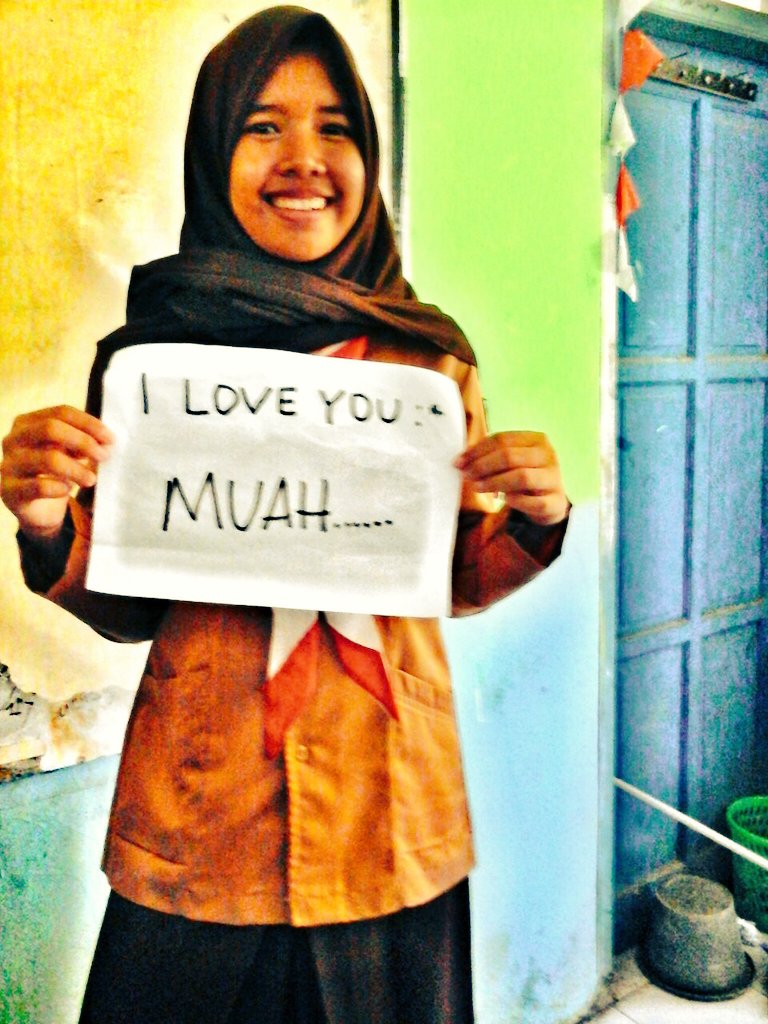 I LOVE YOU :*
MUAH......